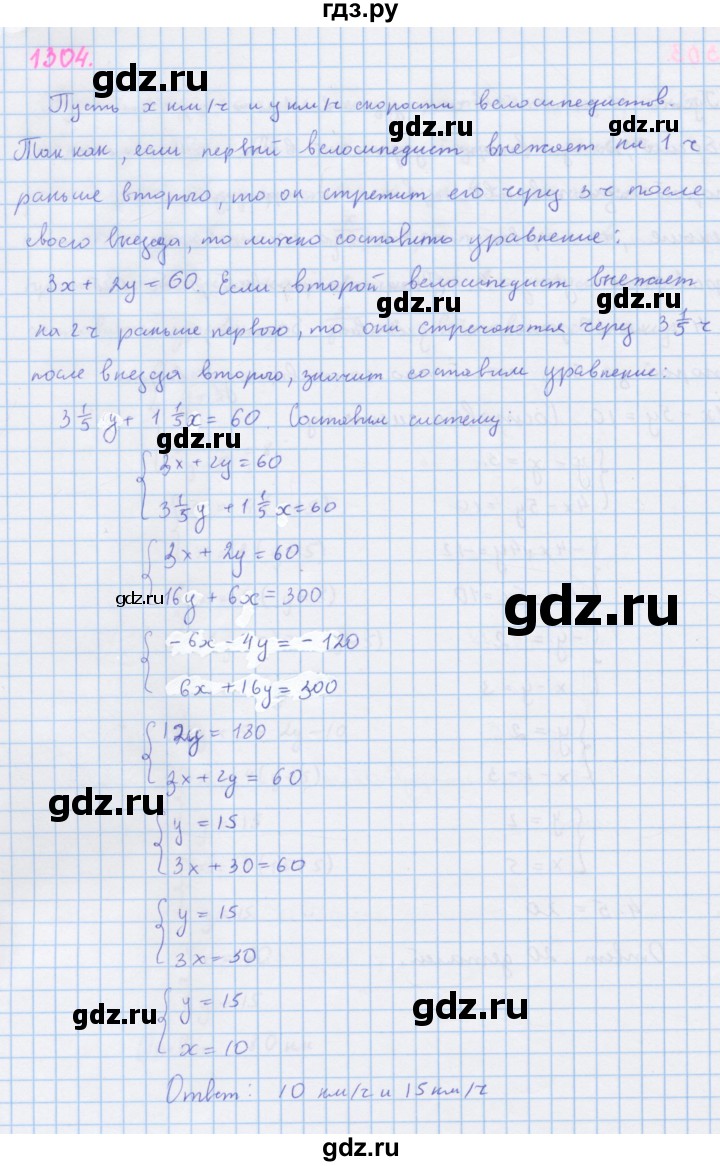 гдз.ру
1304.
gdz.ru
Пусть x км/ч и y км/ч скорости велосипедистов.
gdz.ru
Так как, если первый велосипедист выезжает на 1 ч
раньше второго, то он стретит его через 3 ч после
своего выезда, то можно составить уравнение:
3x + 2y = 60. Если второй велосипедист выезжает
gdz.ru
gdz.ru
на 2 ч раньше первого, то они стречаются через 3 1/5 ч
после выезда второго, значит составим уравнение:
3 1/5 y + 1 1/5 x = 60. Составим систему:
gdz.ru
3x + 2y = 60
3 1/5 y + 1 1/5 x = 60
3x + 2y = 60
gdz.ru
16y + 6x = 300
gdz.ru
-6x - 4y = -120
6x + 16y = 300
12y = 180
3x + 2y = 60
gdz.ru
y = 15
3x + 30 = 60
y = 15
3x = 30
gdz.ru
gdz.ru
y = 15
x = 10
Ответ: 10 км/ч и 15 км/ч
gdz.ru